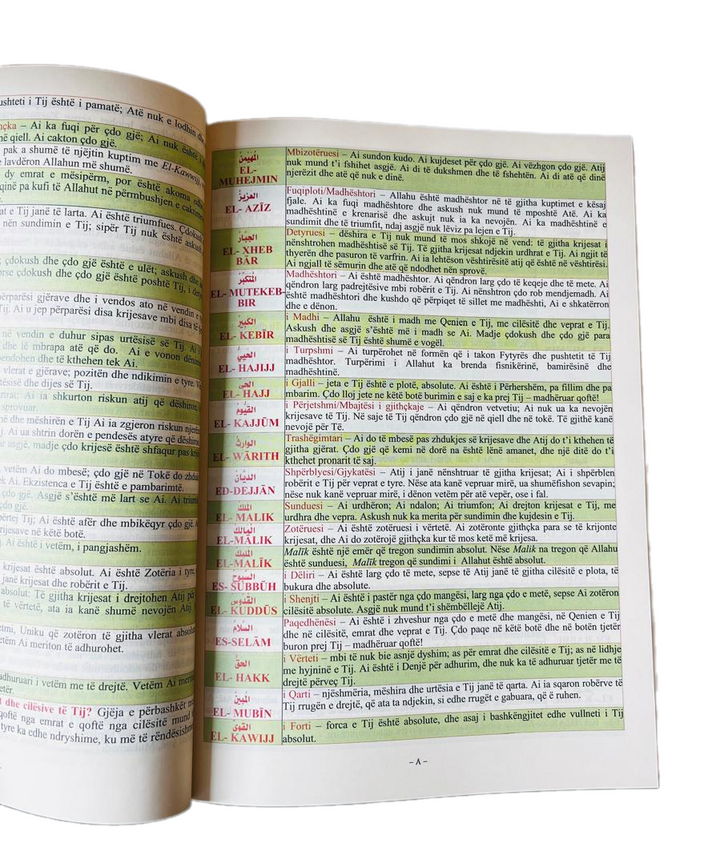 ushteti i Tij është i pamatë; Atë nuk e lodhin
– Ai ka fuqi për çdo gjë; Ai nuk është
në qiell. Ai cakton çdo gjë.
pak a shumë të njëjtin kuptim me El-Kawwijj
e lavdëron Allahun më shumë.
dy emrat e mësipërm, por është akoma
pa kufi të Allahut në përmbushjen e
e Tij janë të larta. Ai është triumfues.
nën sundimin e Tij; sipër Tij nuk është
; çdokush dhe çdo gjë është e ulët; askush
çdokush dhe çdo gjë është poshtë Tij,
gjërave dhe i vendos ato në vendin
Tij. Ai u jep përparësi disa krijesave mbi disa
në vendin e duhur sipas urtësisë së Tij. Ai
dhe të mbrapa atë që do. Ai e vonon
pendohen dhe të kthehen tek Ai.
vlerat e gjërave; pozitën dhe ndikimin e tyre.
dhe dijes së Tij.
Ai e shkurton riskun atij që dëshiron
dhe mëshirën e Tij Ai ia zgjeron riskun
Ai ua shtrin dorën e pendesës atyre që
asgjë, madje çdo krijesë është shfaqur pas
vetëm Ai do të mbesë; çdo gjë në Tokë do
Ai. Ekzistenca e Tij është e pambarimtë.
çdo gjë. Asgjë s'është më lart se Ai. Ai
Tij; Ai është afër dhe mbikëqyr çdo gjë.
në këtë botë.
Ai është i vetëm, i pangjashëm.
krijesat është absolut. Ai është Zotëria i tyre,
janë krijesat dhe robërit e Tij.
absolut: Të gjitha krijesat i drejtohen Atij
të vërtetë, ata ia kanë shumë nevojën Atij.
Uniku që zotëron të gjitha vlerat
Ai meriton të adhurohet.
adhuruari i vetëm me të drejtë. Vetëm Ai
dhe cilësive të Tij? Gjëja e përbashkët
qoftë nga emrat e qoftë nga cilësitë
tyre ka edhe ndryshime, ku më të
المهيمن
EL-
MUHEJMIN
Mbizotëruesi – Ai sundon kudo. Ai kujdeset për çdo gjë. Ai vëzhgon çdo gjë. Atij
nuk mund t'i fshihet asgjë. Ai di të dukshmen dhe të fshehtën. Ai di atë që dinë
njerëzit dhe atë që nuk e dinë.
العزيز
EL- AZĪZ
Fuqiploti/Madhështori – Allahu është madhështor në të gjitha kuptimet e kësaj
fjale. Ai ka fuqi madhështore dhe askush nuk mund të mposhtë Atë. Ai ka
madhështinë e krenarisë dhe askujt nuk ia ka nevojën. Ai ka madhështinë e
sundimit dhe të triumfit, ndaj asgjë nuk lëviz pa lejen e Tij.
الجبار
EL- XHEB
BĀR
Detyruesi – dëshira e Tij nuk mund të mos shkojë në vend: të gjitha krijesat i
nënshtrohen madhështisë së Tij. Të gjitha krijesat ndjekin urdhrat e Tij. Ai ngjit të
thyerën dhe pasuron të varfrin. Ai ia lehtëson vështirësitë atij që është në vështirësi.
Ai ngjall të sëmurin dhe atë që ndodhet nën sprovë.
المتكبر
EL- MUTEKEB-
BIR
Madhështori – Ai është madhështor. Ai qëndron larg çdo të keqeje dhe të mete. Ai
qëndron larg padrejtësive mbi robërit e Tij. Ai nënshtron çdo rob mendjemadh. Ai
është madhështori dhe kushdo që përpiqet të sillet me madhështi, Ai e shkatërron
dhe e dënon.
الكبير
EL- KEBĪR
i Madhi – Allahu është i madh me Qenien e Tij, me cilësitë dhe veprat e Tij.
Askush dhe asgjë s'është më i madh se Ai. Madje çdokush dhe çdo gjë para
madhështisë së Tij është shumë e vogël.
الحيي
EL- HAJIJJ
i Turpshmi – Ai turpërohet në formën që i takon Fytyrës dhe pushtetit të Tij
madhështor. Turpërimi i Allahut ka brenda fisnikërinë, bamirësinë dhe
madhështinë.
الحي
EL - HAJJ
i Gjalli – jeta e Tij është e plotë, absolute. Ai është i Përhershëm, pa fillim dhe pa
mbarim. Çdo lloj jete në këtë botë burimin e saj e ka prej Tij – madhëruar qoftë!
القيوم
EL - KAJJŪM
i Përjetshmi/Mbajtësi i gjithçkaje – Ai qëndron vetvetiu; Ai nuk ua ka nevojën
krijesave të Tij. Në saje të Tij qëndron çdo gjë në qiell dhe në tokë. Të gjithë kanë
nevojë për Të.
الوارث
EL - WĀRITH
Trashëgimtari – Ai do të mbesë pas zhdukjes së krijesave dhe Atij do t'i kthehen të
gjitha gjërat. Çdo gjë që kemi në dorë na është lënë amanet, dhe një ditë do t'i
kthehet pronarit të saj.
الديان
ED-DEJJĀN
Shpërblyesi/Gjykatësi – Atij i janë nënshtruar të gjitha krijesat; Ai i shpërblen
robërit e Tij për veprat e tyre. Nëse ata kanë vepruar mirë, ua shumëfishon sevapin;
nëse nuk kanë vepruar mirë, i dënon vetëm për atë vepër, ose i fal.
الملك
EL- MALIK
Sunduesi – Ai urdhëron; Ai ndalon; Ai triumfon; Ai drejton krijesat e Tij, me
urdhra dhe vepra. Askush nuk ka merita për sundimin dhe kujdesin e Tij.
المالك
EL-MĀLIK
Zotëruesi – Ai është zotëruesi i vërtetë. Ai zotëronte gjithçka para se të krijonte
krijesat, dhe Ai do zotërojë gjithçka kur të mos ketë më krijesa.
المليك
EL-MALĪK
Malīk është një emër që tregon sundimin absolut. Nëse Malik na tregon që Allahu
është sunduesi, Malīk tregon që sundimi i Allahut është absolut.
السبوح
ES- SUBBŪH
i Dëliri – Ai është larg çdo të mete, sepse të Atij janë të gjitha cilësitë e plota, të
bukura dhe absolute.
القدوس
EL- KUDDŪS
i Shenjti – Ai është i pastër nga çdo mangësi, larg nga çdo e metë, sepse Ai zotëron
cilësitë absolute. Asgjë nuk mund t'i shëmbëllejë Atij.
السلام
ES-SELĀM
Paqedhënësi – Ai është i zhveshur nga çdo e metë dhe mangësi, në Qenien e Tij
dhe në cilësitë, emrat dhe veprat e Tij. Çdo paqe në këtë botë dhe në botën tjetër
buron prej Tij – madhëruar qoftë!
الحق
EL - HAKK
i Vërteti – mbi të nuk bie asnjë dyshim; as për emrat dhe cilësitë e Tij; as në lidhje
me hyjninë e Tij. Ai është i Denjë për adhurim, dhe nuk ka të adhuruar tjetër me të
drejtë përveç Tij.
المبين
EL- MUBĪN
i Qarti – njëshmëria, mëshira dhe urtësia e Tij janë të qarta. Ai ia sqaron robërve të
Tij rrugën e drejtë, që ata ta ndjekin, si edhe rrugët e gabuara, që t'i ruhen.
القوي
EL- KAWIJJ
i Forti – forca e Tij është absolute, dhe asaj i bashkëngjitet edhe vullneti i Tij
absolut.
– ٨ –